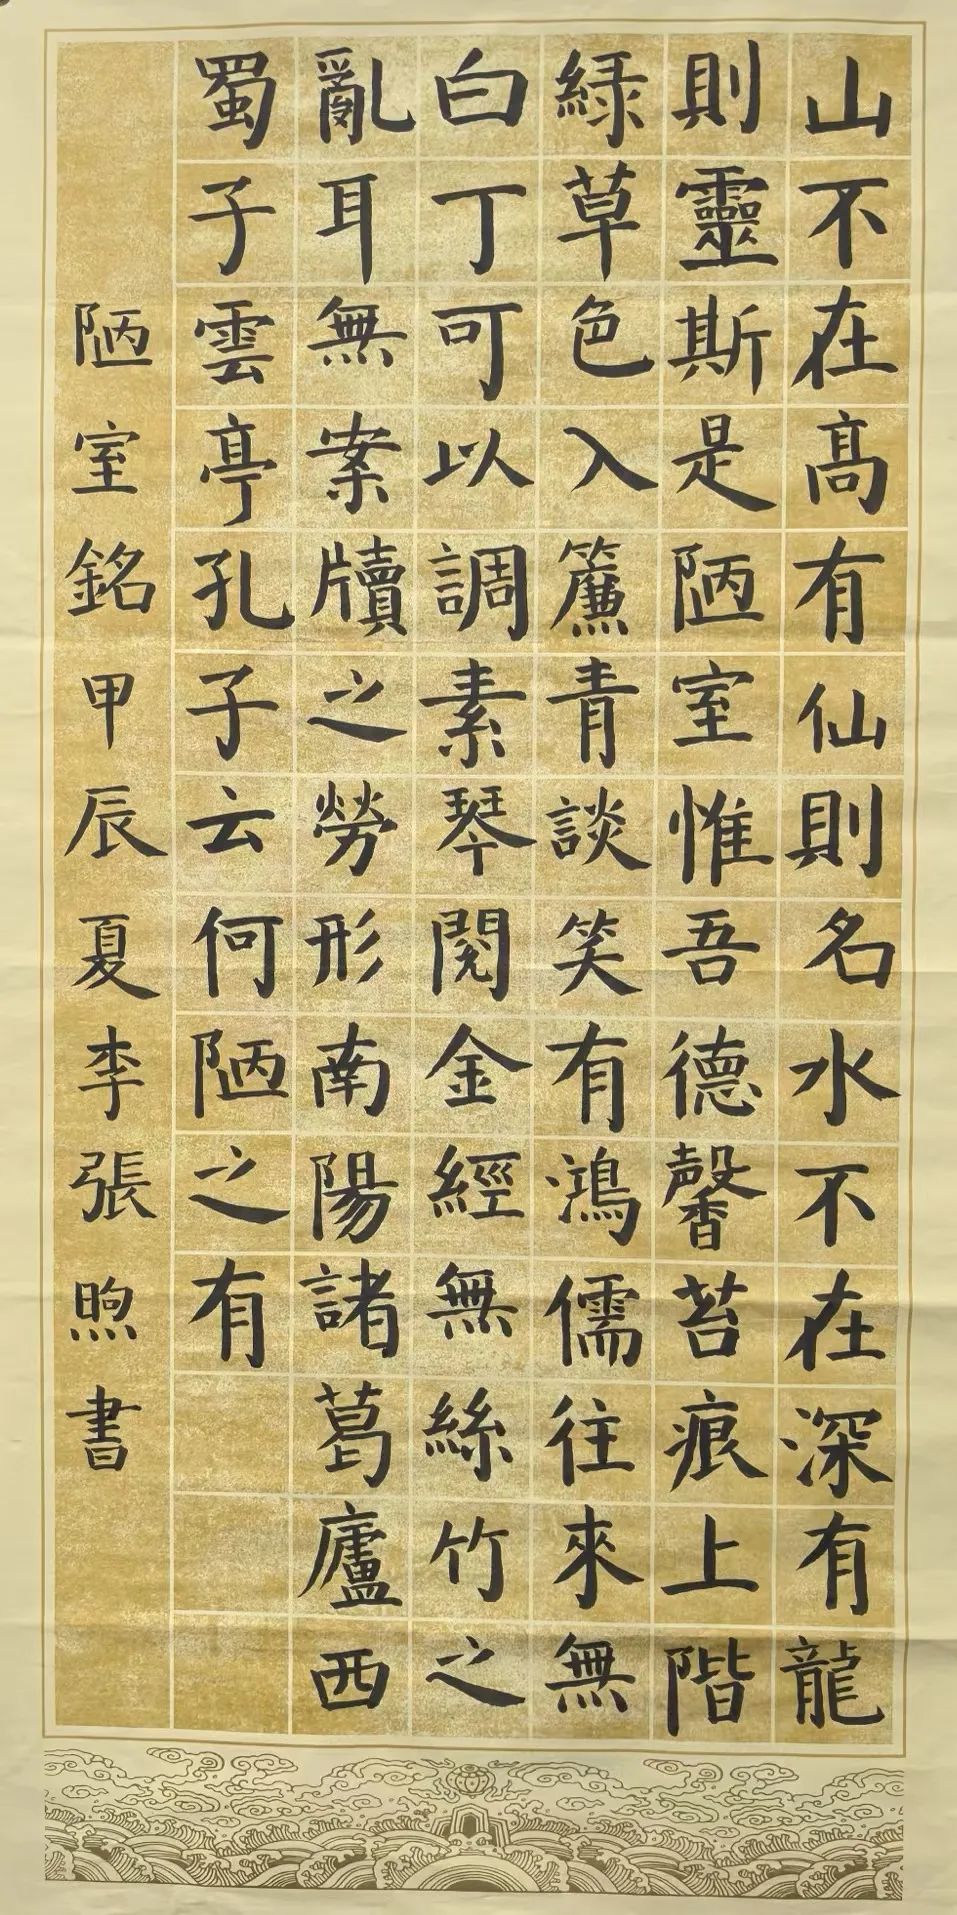 山不在高有仙則名水不在深有龍
則靈斯是陋室惟吾德馨苔痕上階
綠草色入簾青談笑有鴻儒往來無
白丁可以調素琴閱金經無絲竹之
亂耳無案牘之勞形南陽諸葛廬西
蜀子雲亭孔子云何陋之有
陋室銘甲辰夏李張煦書